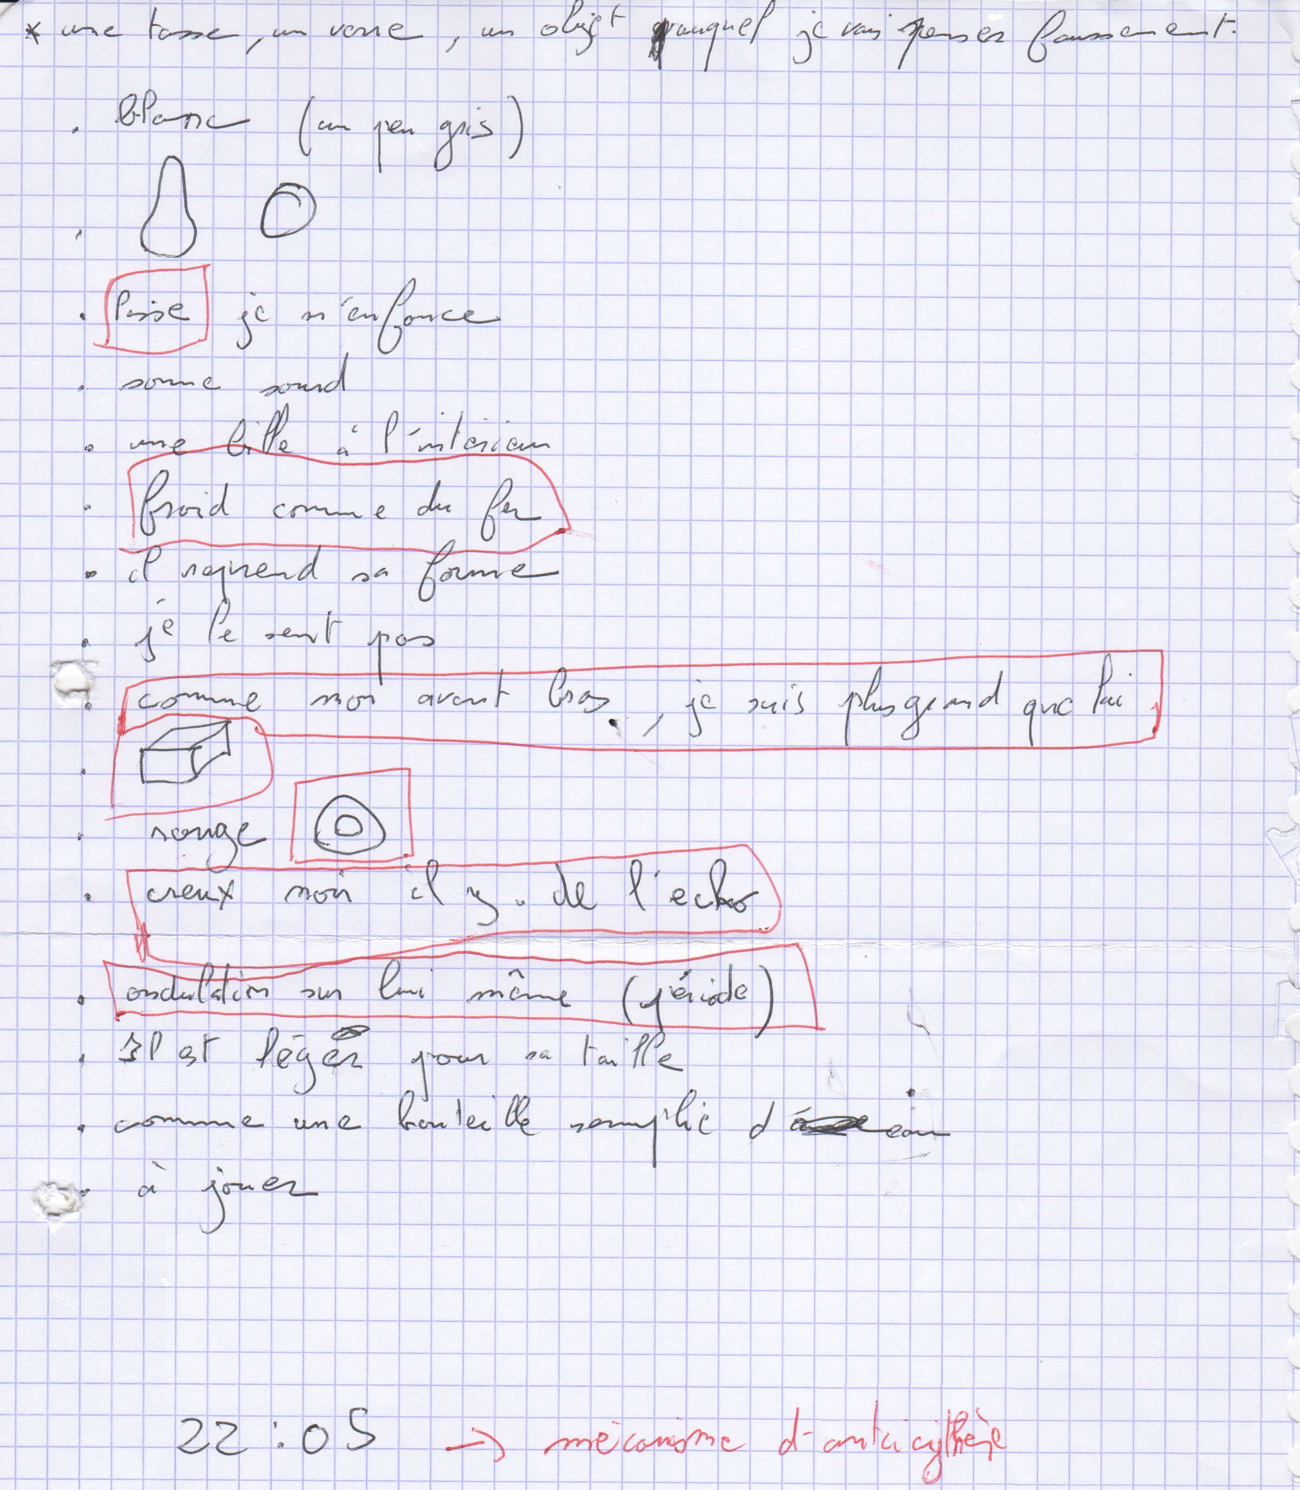 * une tasse, un verre, un objet auquel je vais penser faussement.
. blanc (un peu gris)
. lisse je m'enfonce
. sonne sourd
. une bille à l'intérieur
. froid comme du fer
. il reprend sa forme
. je le sent pas
. comme mon avant bras, je suis plus grand que lui
. rouge
. creux noir il y . de l'echo
. ondulation sur lui même (période)
. Il est léger pour sa taille
. comme une bouteille remplie d'eau
. à jouer
22:05 → mécanisme d'anticythère